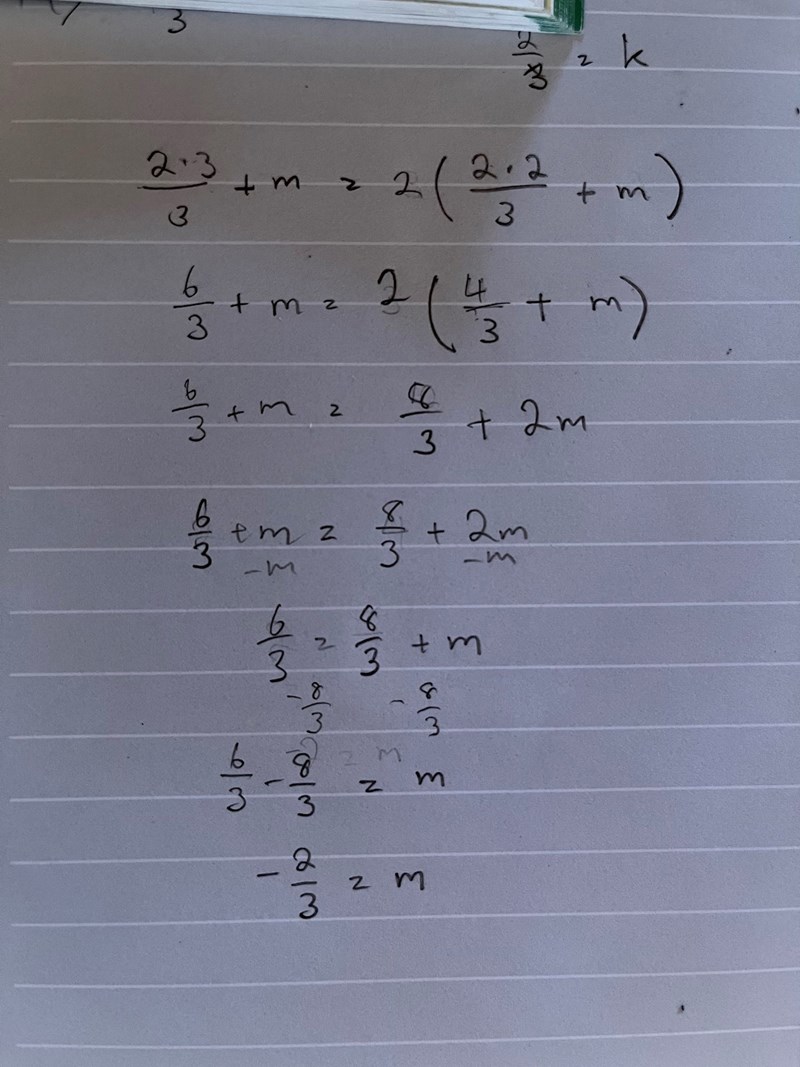 3
2/3 = k
2·3/3 + m = 2(2·2/3 + m)
6/3 + m = 2(4/3 + m)
6/3 + m = 8/3 + 2m
6/3 + m = 8/3 + 2m
-m -m
6/3 = 8/3 + m
-8/3 -8/3
-2 = m
6/3 - 8/3 = m
-2/3 = m